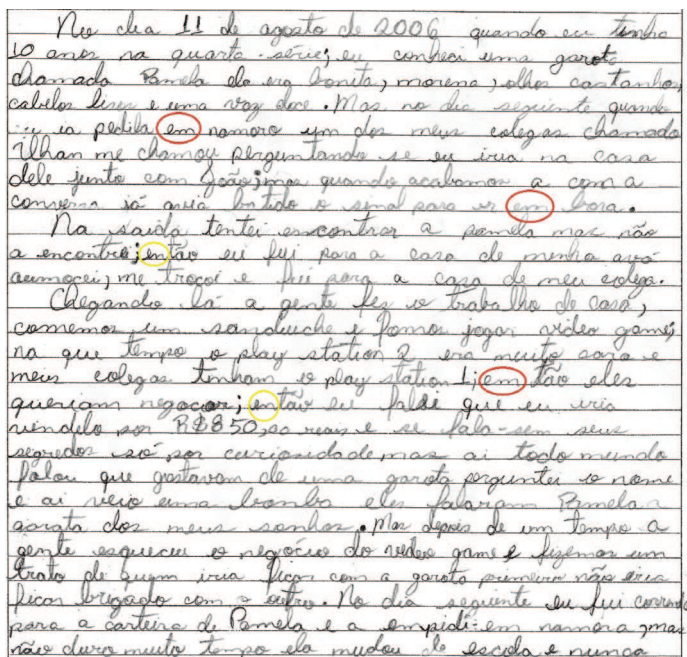 No dia 11 de agosto de 2006 quando eu tinha
10 anos na quarta-série; eu conheci uma garota
chamada Pamela ela era bonita, morena, olhos castanhos,
cabelos lisos e uma voz doce. Mas no dia seguinte quando
ia pedila em namoro um dos meus colegas chamado
Ilhan me chamou perguntando se eu iria na casa
dele junto com João; mas quando acabamos a com a
conversa já avia batido o sinal para ir em bora.
Na saida tentei encontrar a pamela mas não
a encontrei; então eu fui para a casa de minha avó
aumocei, me trocei e fui para a casa de meu colega.
Chegando lá a gente fez o trabalho de casa,
comemos um sanduiche e fomos jogar video game;
na que tempo o play station 2 era muito caro e
meus colegas tinham o play station 1; em tão eles
queriam negociar; então eu falei que eu iria
vendelo por R$850,00 reais e se fala-sem seus
segredos só por curiosidade, mas ai todo mundo
falou que gostavam de uma garota perguntei o nome
e ai veio uma bomba eles falaram Pamela a
garota dos meus sonhos. Mas depois de um tempo a
gente esqueceu o negócio do video game e fizemos um
trato de quem iria ficar com a garota primeiro não iria
ficar brigado com o outro. No dia seguinte eu fui correndo
para a carteira de Pamela e a empidi em namoro, mas
não duro muito tempo ela mudou de escola e nunca